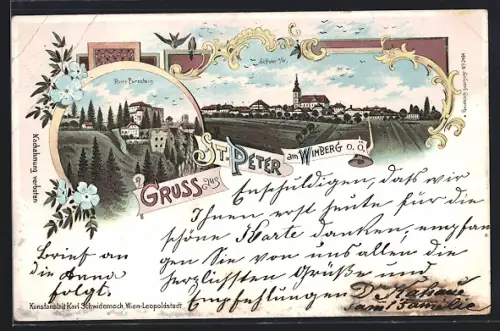 Ruine Pürnstein
St. Peter a/W.
Nachahmung verboten
GRUSS aus
ST. PETER am WIMBERG O. Ö.
Entschuldigen, dass wir
Ihnen erst heute für die
schöne Karte danken, empfan
gen Sie von uns allen die
herzlichsten Grüße und
Empfehlungen
samt Familie
Brief an
die Anna
folgt.
Kunstanstalt Karl Schwidernoch, Wien-Leopoldstadt.